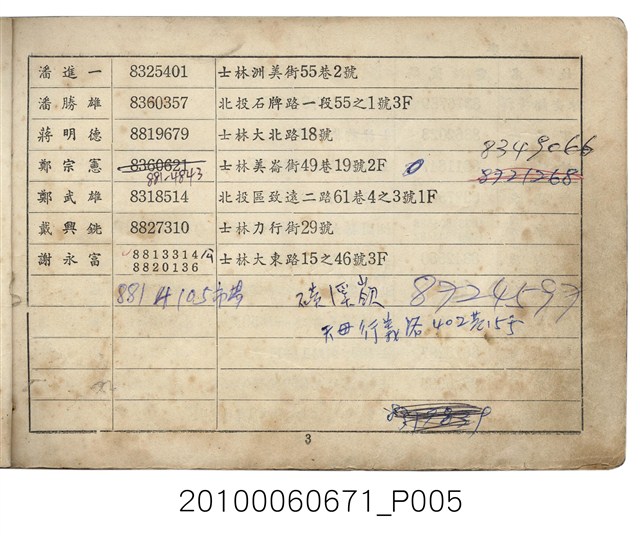 潘進一 8325401 士林洲美街55巷2號
潘勝雄 8360357 北投石牌路一段55之1號3F
蔣明德 8819679 士林大北路18號
8349066
鄭宗憲 8360621 士林美崙街49巷19號2F 8921268
8824843
鄭武雄 8318514 北投區致遠二路61巷4之3號1F
戴興銚 8827310 士林力行街29號
謝永富 8813314公 士林大東路15之46號3F
8820136
8814105市場 溪 8724597
天母行義路402巷15号
3
20100060671_P005